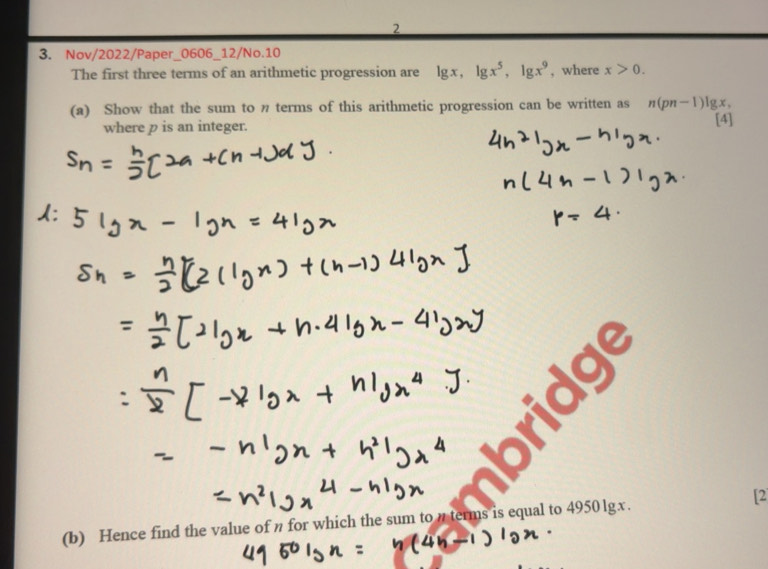 2
3. Nov/2022/Paper_0606_12/No.10
The first three terms of an arithmetic progression are lg x, lg x⁵, lg x⁹, where x > 0.
(a) Show that the sum to n terms of this arithmetic progression can be written as n(pn − 1)lg x,
where p is an integer. [4]
Sn = n/2 [2a + (n-1)d].
d: 5 lg x - lg x = 4 lg x
Sn = n/2 [2(lg x) + (n-1) 4 lg x]
= n/2 [2 lg x + n·4 lg x - 4 lg x]
= n/2 [-2 lg x + n lg x⁴].
= -n lg x + n² lg x⁴
= n² lg x⁴ - n lg x
4n² lg x - n lg x.
n(4n - 1) lg x.
p = 4.
Cambridge
[2
(b) Hence find the value of n for which the sum to n terms is equal to 4950 lg x.
4950 lg x = n(4n-1) lg x.